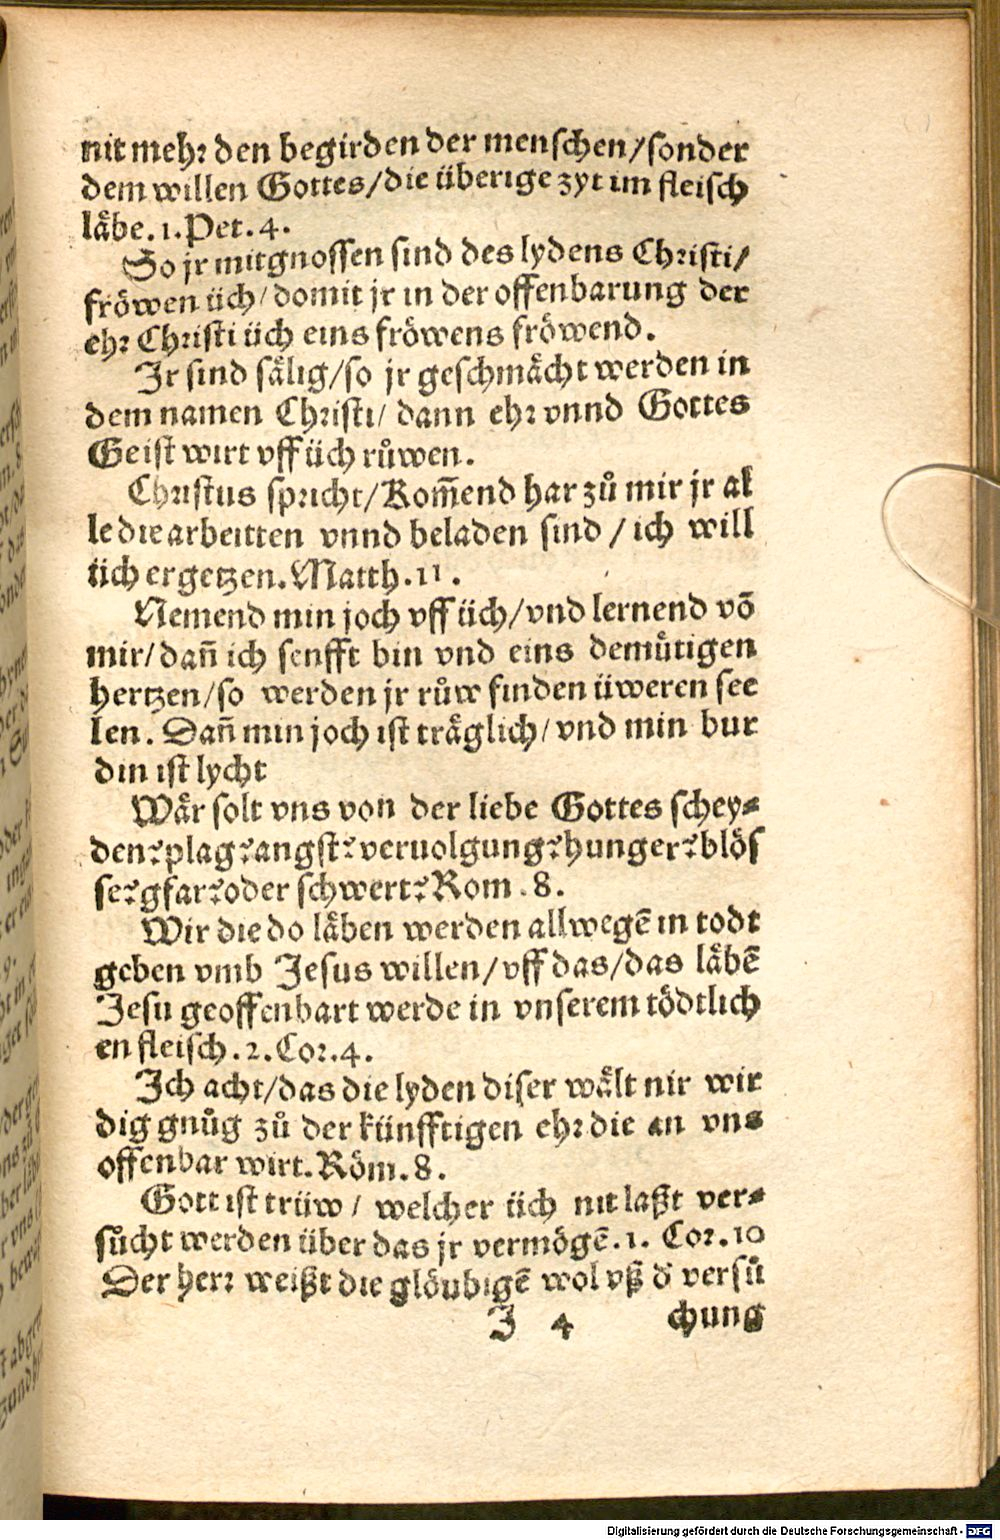 nit mehr den begirden der menschen/sonder
dem willen Gottes/die überige zyt im fleisch
läbe.1.Pet.4.
So jr mitgnossen sind des lydens Christi/
fröwen üch/domit jr in der offenbarung der
ehr Christi üch eins fröwens fröwend.
Ir sind sälig/so jr geschmächt werden in
dem namen Christi/ dann ehr vnnd Gottes
Geist wirt vff üch růwen.
Christus spricht/Kom̃end har zů mir jr al
le die arbeitten vnnd beladen sind/ich will
üch ergetzen.Matth.11.
Nemend min joch vff üch/vnd lernend võ
mir/dañ ich senfft bin vnd eins demütigen
hertzen/so werden jr růw finden üweren see
len. Dañ min joch ist träglich/vnd min bur
din ist lycht
Wär solt vns von der liebe Gottes schey⸗
den?plag?angst?veruolgung?hunger?blös
se?gfar?oder schwert?Rom.8.
Wir die do läben werden allwegẽ in todt
geben vmb Jesus willen/vff das/das läbẽ
Jesu geoffenbart werde in vnserem tödtlich
en fleisch.2.Cor.4.
Ich acht/das die lyden diser wält nit wir
dig gnůg zů der künfftigen ehr die an vns
offenbar wirt.Röm.8.
Gott ist trüw/ welcher üch nit laßt ver⸗
sůcht werden über das jr vermögẽ.1. Cor.10
Der herr weißt die glöubigẽ wol vß d' versů
J 4 chung
Digitalisierung gefördert durch die Deutsche Forschungsgemeinschaft - DFG